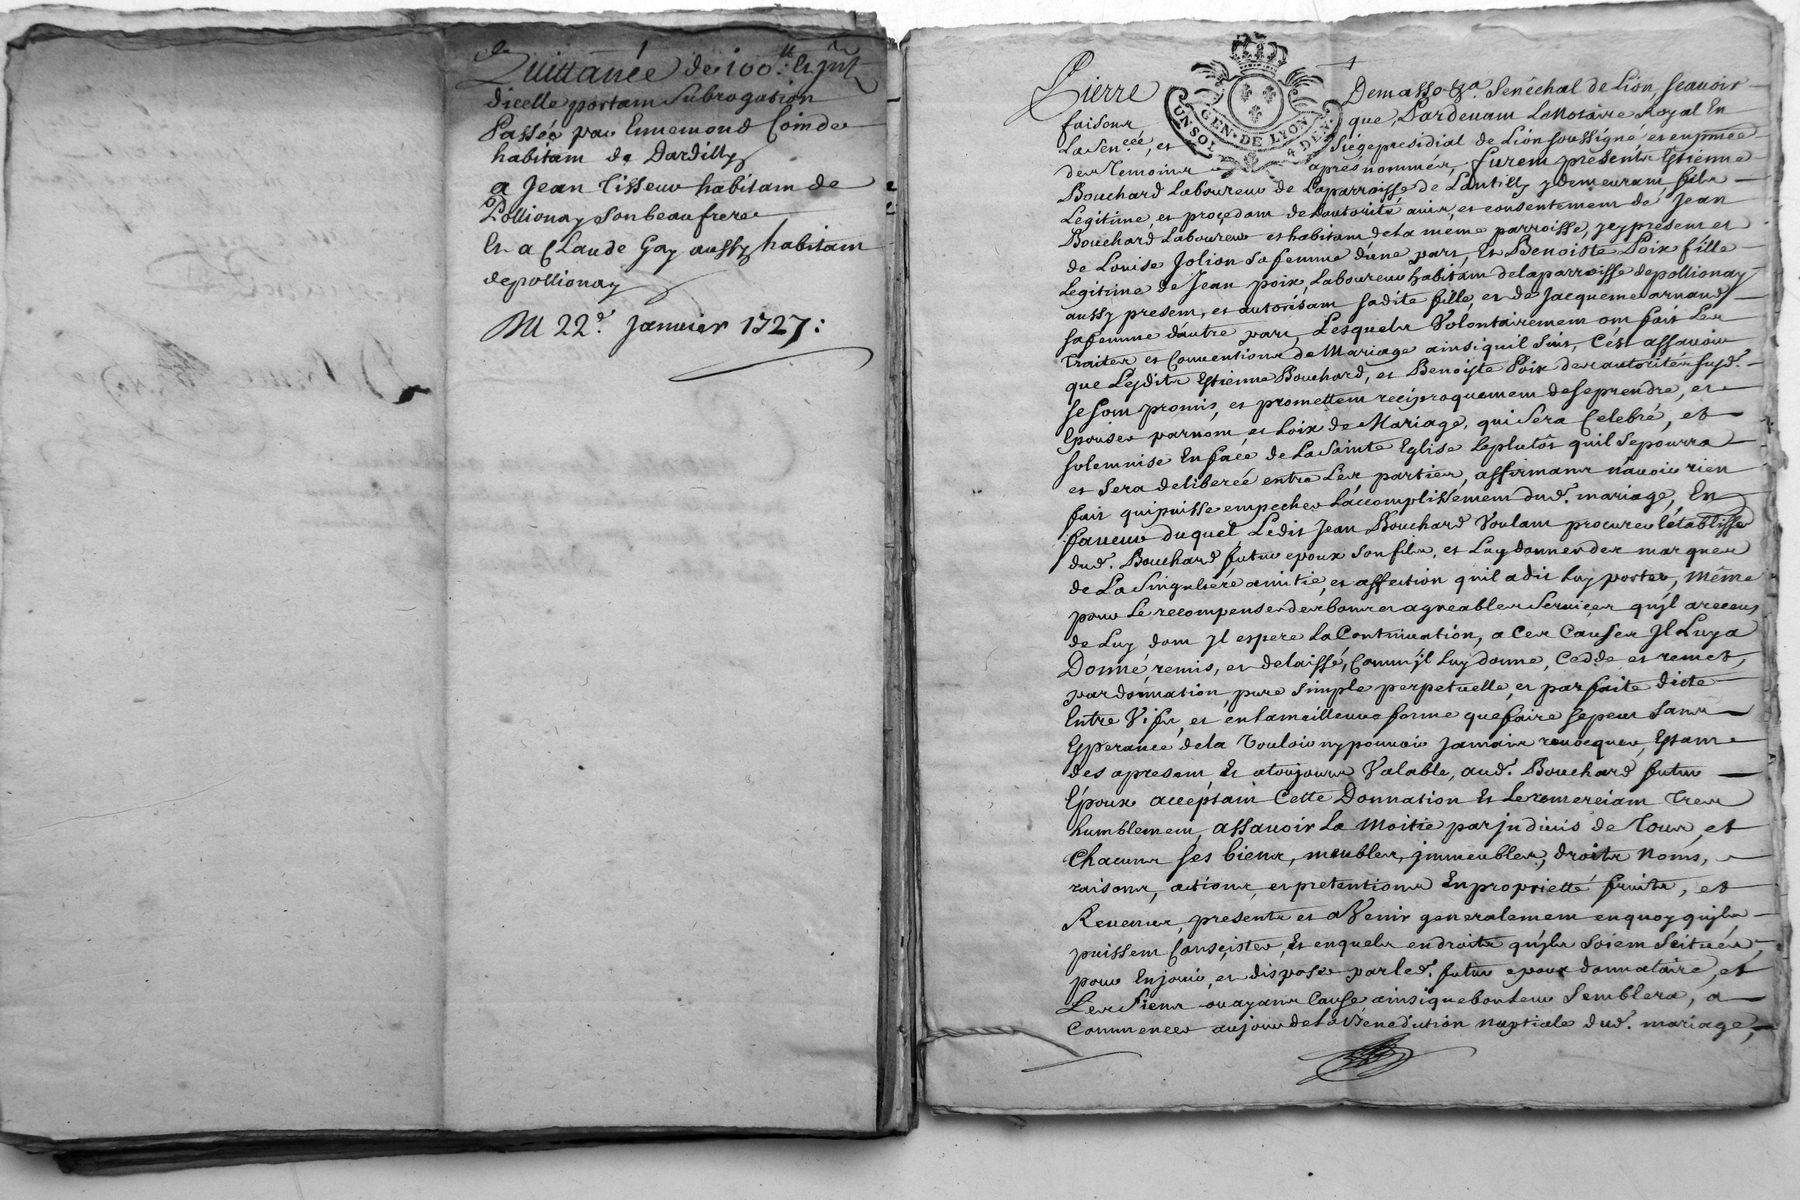 Quittance de 100ᵗᵗ & jnt
dicelle portam Subrogation
Passée par Ennemond Coinde
habitam de Dardilly
a Jean Tisseur habitam de
Pollionay son beau frere
Et a Claude Gay aussy habitam
de pollionay
Du 22ᵉ. Janvier 1727:
GEN · DE LYON
UN SOL 4 DEN·
Pierre Demasso &ᵃ. Senéchal de Lion, scavoir
faisons que Pardevam Le Notaire Royal En
La Sen.ᶜᵉᵉ, et Siége presidial de Lion soussigné, et en pñce
des Temoins aprés nommés, furem présents Estienne
Bouchard Laboureur de La parroisse de Lentilly y demeuram fils
Legitime et proçedam de L'autorité avis, et consentement de Jean
Bouchard Laboureur et habitam de La meme parroisse, jcy présem et
de Louise Jolion sa femme d'une part, Et Benoiste Poix fille
Legitime de Jean poix, Laboureur habitam de la parroisse de pollionay
aussy presem, et autorisam sadite fille, et de Jacqueme arnaud
sa femme d'autre part, Lesquels Volontairemem om fait Les
Traites et Conventions de Mariage ainsi quil suit, C'ést assavoir
que Lesdits Estienne Bouchard, et Benoiste Poix des autorités susd.
se som promis, et promettem reciproquemem de se prendre, et
Epouser par nom et Loix de Mariage, qui Sera Celebré, et
solemnise En face de La Sainte Eglise Le plutôt quil se pourra
et Sera deliberée entre Les parties, affirmans n'avoir rien
fait qui puisse empecher L'accomplissemem dud. mariage, En
faveur duquel Ledit Jean Bouchard Voulam procurer l'établisse
dud. Bouchard futur epoux son fils, et Luy donner des marques
de La Singuliere amitie, et affection quil a dit Luy porter, Même
pour Le recompenser des bons et agreables Services qu'jl a receus
de Luy dom Jl espere La Continuation, a Ces Causes Jl Luy a
Donné, remis, et delaissé, Comm'jl Luy donne, Cedde et remet,
par donnation pure simple perpetuelle, et parfaite dicte
Entre Vifs, et en la meilleure forme que faire se peut Sans
Esperance de la Vouloir ny pouvoir Jamais revocquer, Estam
des apresem Et a toujours Valable, aud. Bouchard futur
Epoux acceptam Cette Donnation Et Le remerciam Tres
humblemem, assavoir La Moitie par jndivis de Tous, et
Chacuns ses biens, meubles, jmmeubles, droits Noms,
raisons, actions, et pretentions En proprietté fruits, et
Revenus, presents et aVenir generalemem en quoy qu'jls
puissem Consister, Et en quels endroits qu'jls soiem Scitués,
pour En jouir, et disposer par led. futur epoux donnataire, et
Les Siens ou ayans Cause ainsi que bon leur Semblera, a
Commencer au jour de La Benediction nuptiale dud. mariage,